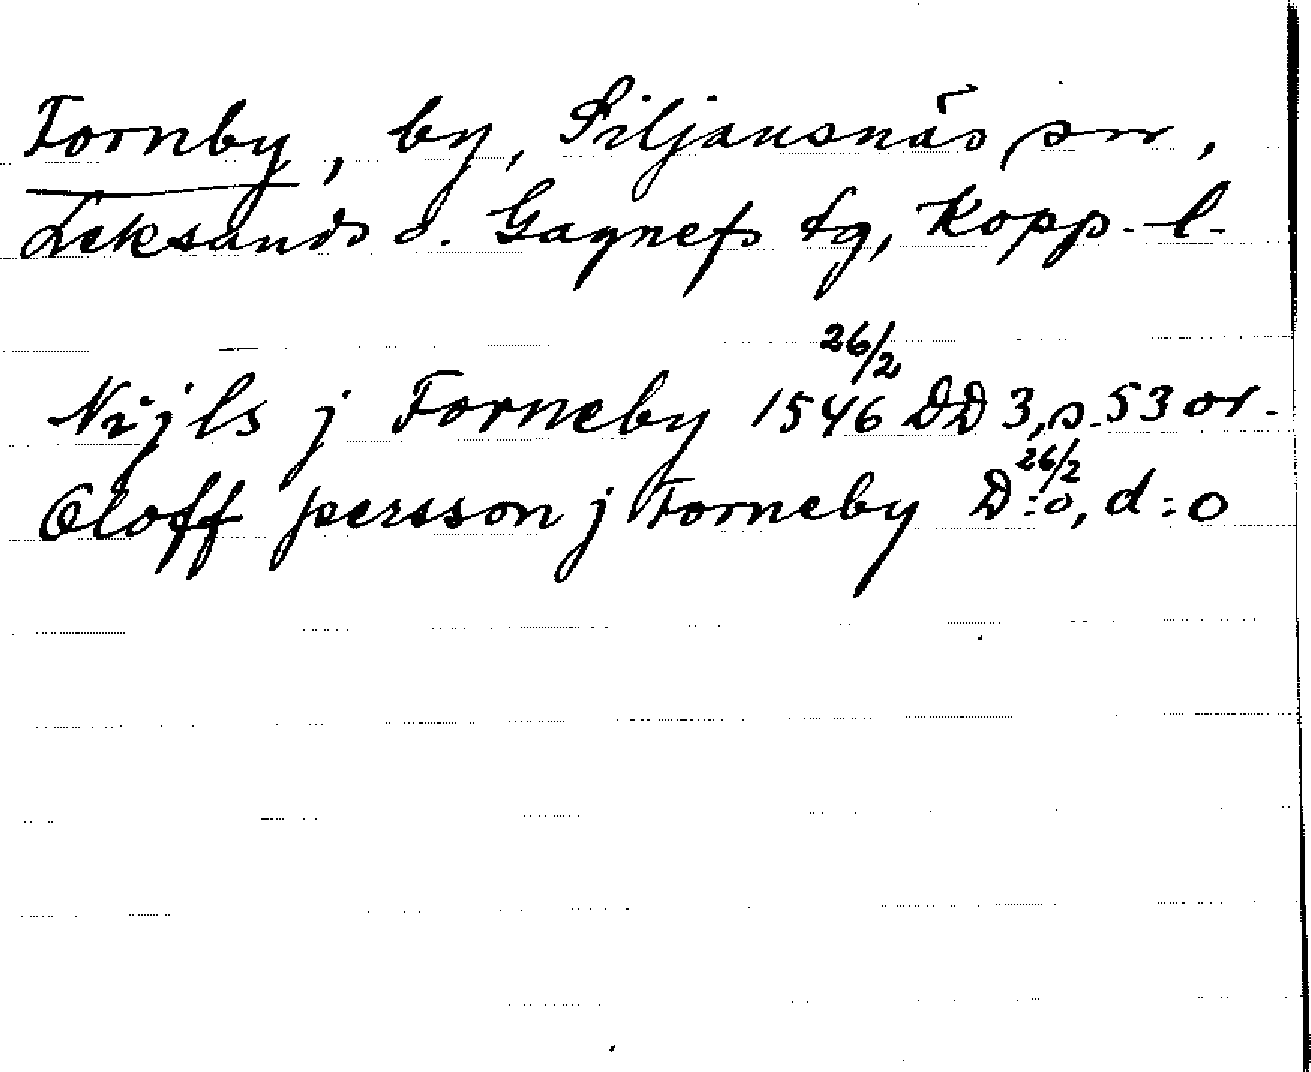 Fornby, by, Siljansnäs sn,
Leksands o. Gagnefs tg, Kopp. l.
26/2
Nijls j Forneby 1546 DD 3, s. 53 or.
26/2
Oloff persson j Forneby D:o, d:o